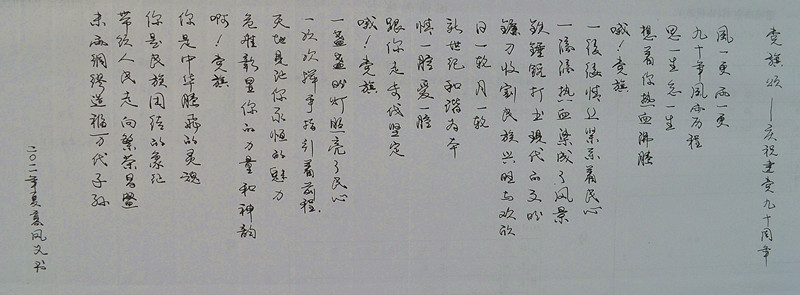 党旗颂——庆祝建党九十周年
风一更雨一更
九十年风雨历程
思一生念一生
想着你热血沸腾
哦！党旗
一缕缕情丝紧系着民心
一滚滚热血染成了风景
铁锤锻打出现代的文明
镰刀收割民族兴旺与欢欣
日一轮月一轮
新世纪和谐为本
情一腔爱一腔
跟你走步伐坚定
哦！党旗
一盏盏的灯照亮了民心
一次次挥手指引着前程
天地见证你永恒的魅力
危难彰显你的力量和神韵
啊！党旗
你是中华腾飞的灵魂
你是民族团结的象征
带领人民走向繁荣昌盛
未雨绸缪造福万代子孙
二〇一一年夏 风文书